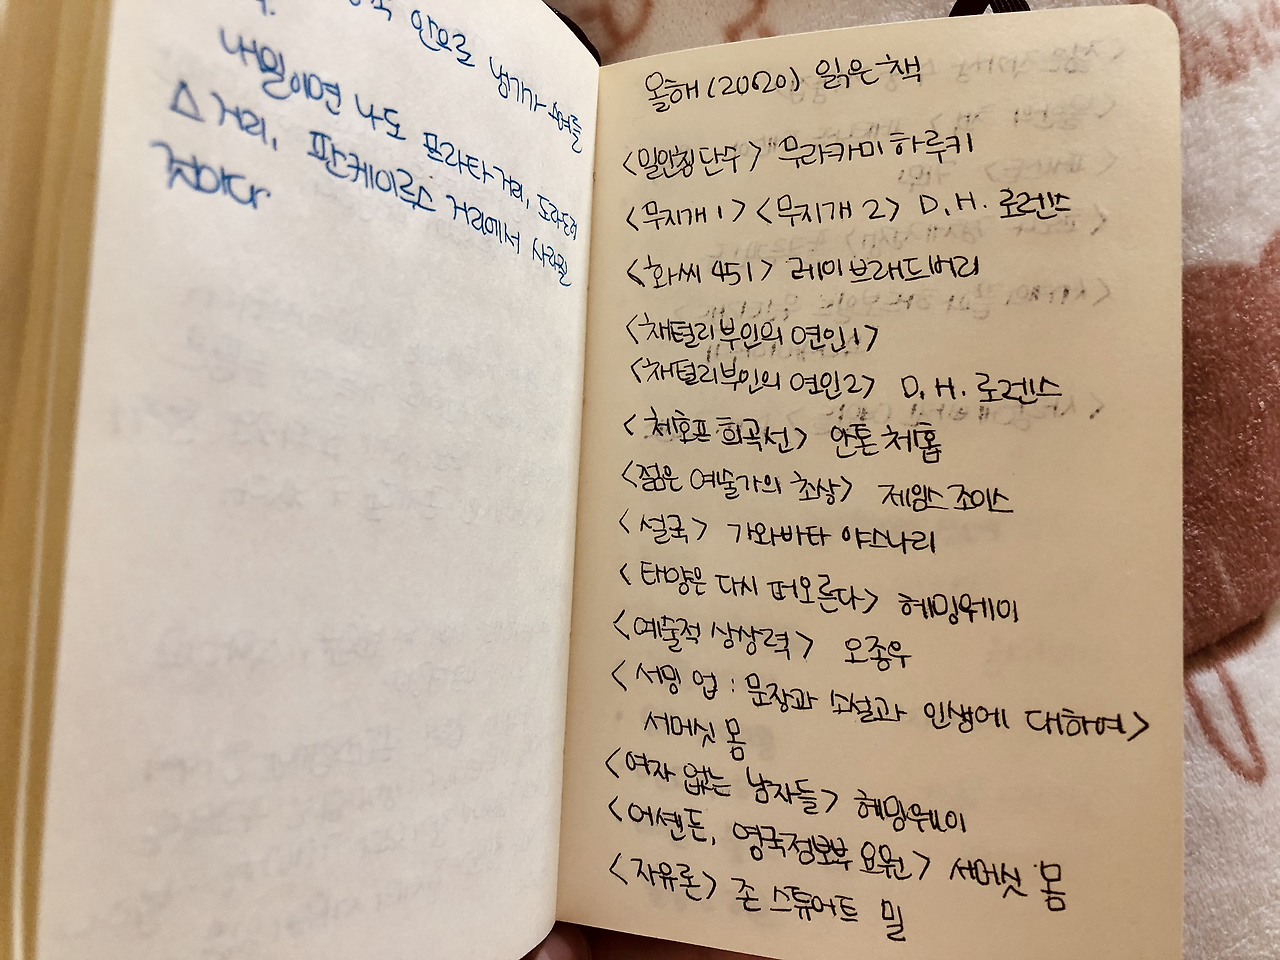 안으로 넘기가 수어를
내일이면 나도 프라타 거리, 도라도레
스 거리, 판케이루스 거리에서 사라질
것이다
올해(2020) 읽은 책
<일인칭 단수> 무라카미 하루키
<무지개 1> <무지개 2> D.H. 로렌스
<화씨 451> 레이 브래드버리
<채털리부인의 연인1>
<채털리부인의 연인2> D.H. 로렌스
<체호프 희곡선> 안톤 체홉
<젊은 예술가의 초상> 제임스 조이스
<설국> 가와바타 야스나리
<태양은 다시 떠오른다> 헤밍웨이
<예술적 상상력> 오종우
<서밍 업 : 문장과 소설과 인생에 대하여>
서머싯 몸
<여자 없는 남자들> 헤밍웨이
<어센든, 영국정보부 요원> 서머싯 몸
<자유론> 존 스튜어트 밀